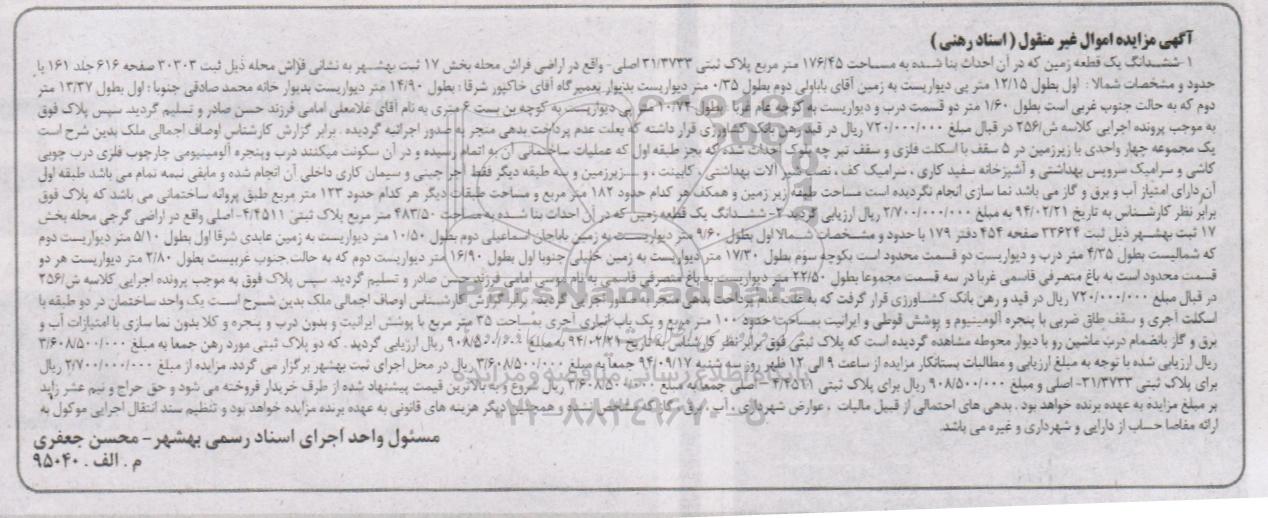 آگهی مزایده اموال غیر منقول ( اسناد رهنی )
۱-ششدانگ یک قطعه زمین که در آن احداث بنا شده به مساحت ۱۷۶/۴۵ متر مربع پلاک ثبتی ۳۱/۳۷۳۳ اصلی- واقع در اراضی فراش محله بخش ۱۷ ثبت بهشهر به نشانی فراش محله ذیل ثبت ۳۰۳۰۳ صفحه ۶۱۶ جلد ۱۶۱ با
حدود و مشخصات شمالا : اول بطول ۱۲/۱۵ متر پی دیواریست به زمین آقای باباولی دوم بطول ۰/۳۵ متر دیواریست بدیوار تعمیرگاه آقای خاکپور شرقا : بطول ۱۴/۹۰ متر دیواریست بدیوار خانه محمد صادقی جنوبا : اول بطول ۱۳/۳۷ متر
دوم که به حالت جنوب غربی است بطول ۱/۶۰ متر دو قسمت درب و دیواریست به کوچه عام غربا : بطول ۱۰/۷۴ متر پی دیواریست به کوچه بن بست ۶ متری به نام آقای غلامعلی امامی فرزند حسن صادر و تسلیم گردید. سپس پلاک فوق
به موجب پرونده اجرایی کلاسه ش/۲۵۶ در قبال مبلغ ۷۲۰/۰۰۰/۰۰۰ ریال در قید رهن بانک کشاورزی قرار داشته که بعلت عدم پرداخت بدهی منجر به صدور اجرائیه گردیده . برابر گزارش کارشناس اوصاف اجمالی ملک بدین شرح است
یک مجموعه چهار واحدی با زیرزمین در ۵ سقف با اسکلت فلزی و سقف تیر چه بلوک احداث شده که بجز طبقه اول که عملیات ساختمانی آن به اتمام رسیده و در آن سکونت میکنند درب وپنجره آلومینیومی چارچوب فلزی درب چوبی
کاشی و سرامیک سرویس بهداشتی و آشپزخانه سفید کاری ، سرامیک کف ، نصب شیر آلات بهداشتی ، کابینت ، و ... زیرزمین و سه طبقه دیگر فقط آجر چینی و سیمان کاری داخلی آن انجام شده و مابقی نیمه تمام می باشد طبقه اول
آن دارای امتیاز آب و برق و گاز می باشد نما سازی انجام نگردیده است مساحت طبقه زیر زمین و همکف هر کدام حدود ۱۸۲ متر مربع و مساحت طبقات دیگر هر کدام حدود ۱۲۳ متر مربع طبق پروانه ساختمانی می باشد که پلاک فوق
برابر نظر کارشناس به تاریخ ۹۴/۰۲/۲۱ به مبلغ ۲/۷۰۰/۰۰۰/۰۰۰ ریال ارزیابی گردید ۲- ششدانگ یک قطعه زمین که در آن احداث بنا شده به مساحت ۴۸۳/۵۰ متر مربع پلاک ثبتی ۴/۴۵۱۱- اصلی واقع در اراضی گرجی محله بخش
۱۷ ثبت بهشهر ذیل ثبت ۳۳۶۲۴ صفحه ۴۵۴ دفتر ۱۷۹ با حدود و مشخصات شمالا اول بطول ۹/۶۰ متر دیواریست به زمین باباجان اسماعیلی دوم بطول ۱۰/۵۰ متر دیواریست به زمین عابدی شرقا اول بطول ۵/۱۰ متر دیواریست دوم
که شمالیست بطول ۴/۳۵ متر درب و دیواریست دو قسمت محدود است بکوچه سوم بطول ۱۷/۳۰ متر دیواریست به زمین خلیلی جنوبا اول بطول ۱۶/۹۰ متر دیواریست دوم که به حالت جنوب غربیست بطول ۲/۸۰ متر دیواریست هر دو
قسمت محدود است به باغ متصرفی قاسمی غربا در سه قسمت مجموعا بطول ۲۲/۵۰ متر دیواریست به باغ متصرفی قاسمی به نام امامی فرزند حسن صادر و تسلیم گردید. سپس پلاک فوق به موجب پرونده اجرایی کلاسه ش/۲۵۶
در قبال مبلغ ۷۲۰/۰۰۰/۰۰۰ ریال در قید و رهن بانک کشاورزی قرار گرفت که به علت عدم پرداخت بدهی منجر به صدور اجرائیه گردید . برابر گزارش کارشناس اوصاف اجمالی ملک بدین شرح است یک واحد ساختمان در دو طبقه با
اسکلت آجری و سقف طاق ضربی با پنجره آلومینیوم و پوشش قوطی و ایرانیت بمساحت حدود ۱۰۰ متر مربع و یک باب انباری آجری بمساحت ۳۵ متر مربع با پوشش ایرانیت و بدون درب و پنجره و کلا بدون نما سازی با امتیازات آب و
برق و گاز بانضمام درب ماشین رو با دیوار محوطه مشاهده گردیده است که پلاک ثبتی فوق برابر نظر کارشناس به تاریخ ۹۴/۰۲/۲۱ به مبلغ ۹۰۸/۵۰۰/۰۰۰ ریال ارزیابی گردید . که دو پلاک ثبتی مورد رهن جمعا به مبلغ ۳/۶۰۸/۵۰۰/۰۰۰
ریال ارزیابی شده با توجه به مبلغ ارزیابی و مطالبات بستانکار مزایده از ساعت ۹ الی ۱۲ ظهر روز سه شنبه ۹۴/۰۹/۱۷ جمعاً به مبلغ ۳/۶۰۸/۵۰۰/۰۰۰ ریال در محل اجرای ثبت بهشهر برگزار می گردد. مزایده از مبلغ ۲/۷۰۰/۰۰۰/۰۰۰ ریال
برای پلاک ثبتی ۳۱/۳۷۳۳- اصلی و مبلغ ۹۰۸/۵۰۰/۰۰۰ ریال برای پلاک ثبتی ۴/۴۵۱۱ - اصلی جمعا به مبلغ ۳/۶۰۸/۵۰۰/۰۰۰ ریال شروع و به بالاترین قیمت پیشنهاد شده از طرف خریدار فروخته می شود و حق حراج و نیم عشر زاید
بر مبلغ مزایده به عهده برنده خواهد بود . بدهی های احتمالی از قبیل مالیات ، عوارض شهرداری ، آب ، برق ، گاز که مشخص نشده و همچنین دیگر هزینه های قانونی به عهده برنده مزایده خواهد بود و تنظیم سند انتقال اجرایی موکول به
ارائه مفاصا حساب از دارایی و شهرداری و غیره می باشد.
مسئول واحد اجرای اسناد رسمی بهشهر- محسن جعفری
م . الف . ۹۵۰۴۰
ParsNamadData
۰۲۱-۸۸۳۴۹۶۷۰-۵